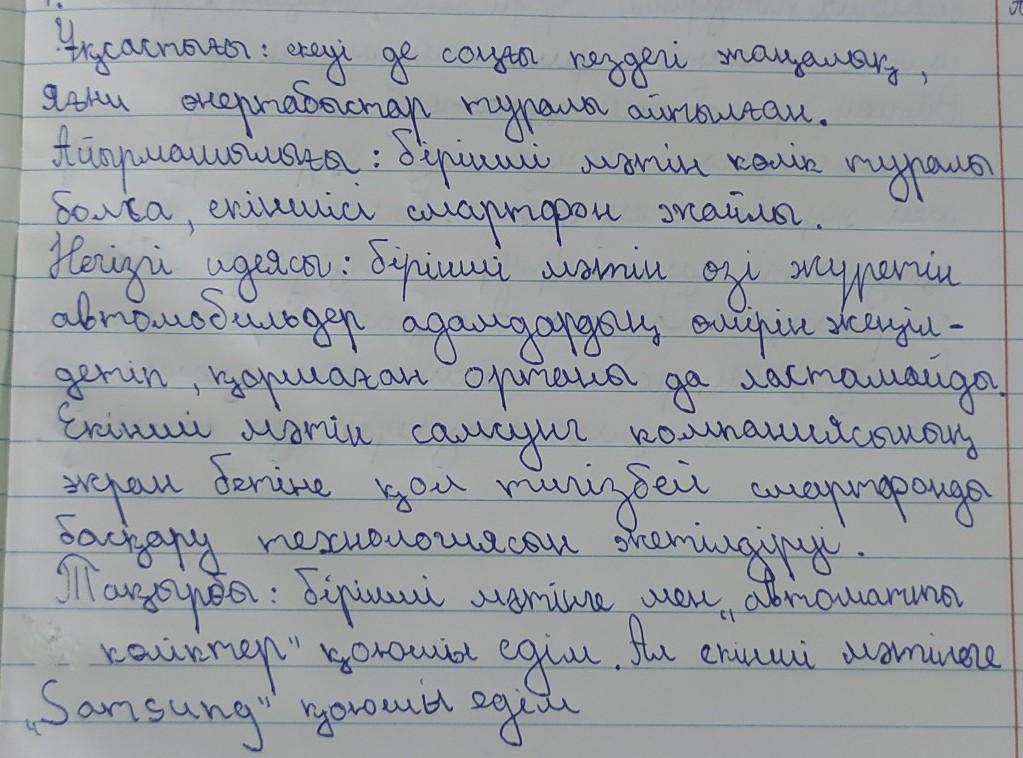 Ұқсастығы: екеуі де соңғы кездегі жаңалық,
яғни өнертабыстар туралы айтылған.
Айырмашылығы: бірінші мәтін көлік туралы
болса, екіншісі смартфон жайлы.
Негізгі идеясы: бірінші мәтін өзі жүретін
автомобильдер адамдардың өмірін жеңіл-
детіп, қоршаған ортаны да ластамайды.
Екінші мәтін самсунг компаниясының
экран бетіне қол тигізбей смартфонды
басқару технологиясын жетілдіруі.
Тақырыбы: бірінші мәтінге мен „автоматты
көліктер" қоюшы едім. Ал екінші мәтінге
„Samsung" қоюшы едім